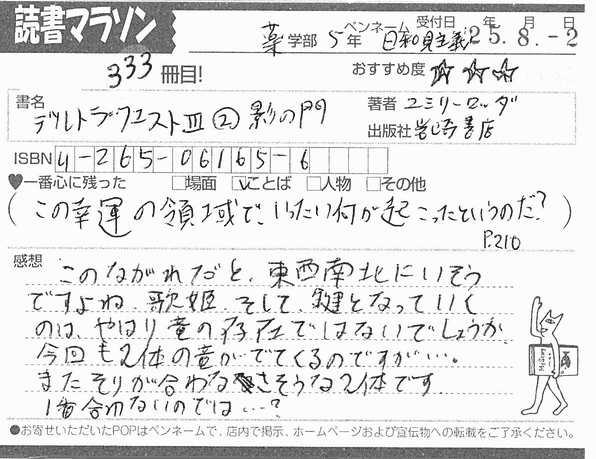 読書マラソン
薬学部 5年 ペンネーム 日和見主義 受付日 25.年8.月-2日
333冊目!
おすすめ度 ☆☆☆
書名 デルトラクエストIII ② 影の門
著者 エミリーロッダ
出版社 岩崎書店
ISBN 4-265-06165-6
♥一番心に残った □場面 ☑ことば □人物 □その他
(この幸運の領域で、いったい何が起こったというのだ?)
P.210
感想
このながれだと、東西南北にいそう
ですよね、歌姫。そして、鍵となっていく
のは、やはり竜の存在ではないでしょうか。
今回も2体の竜がでてくるのですが…。
またそりが合わなさそうな2体です。
1番合わないのでは…?
●お寄せいただいたPOPはペンネームで、店内で掲示、ホームページおよび宣伝物への転載をご了承ください。